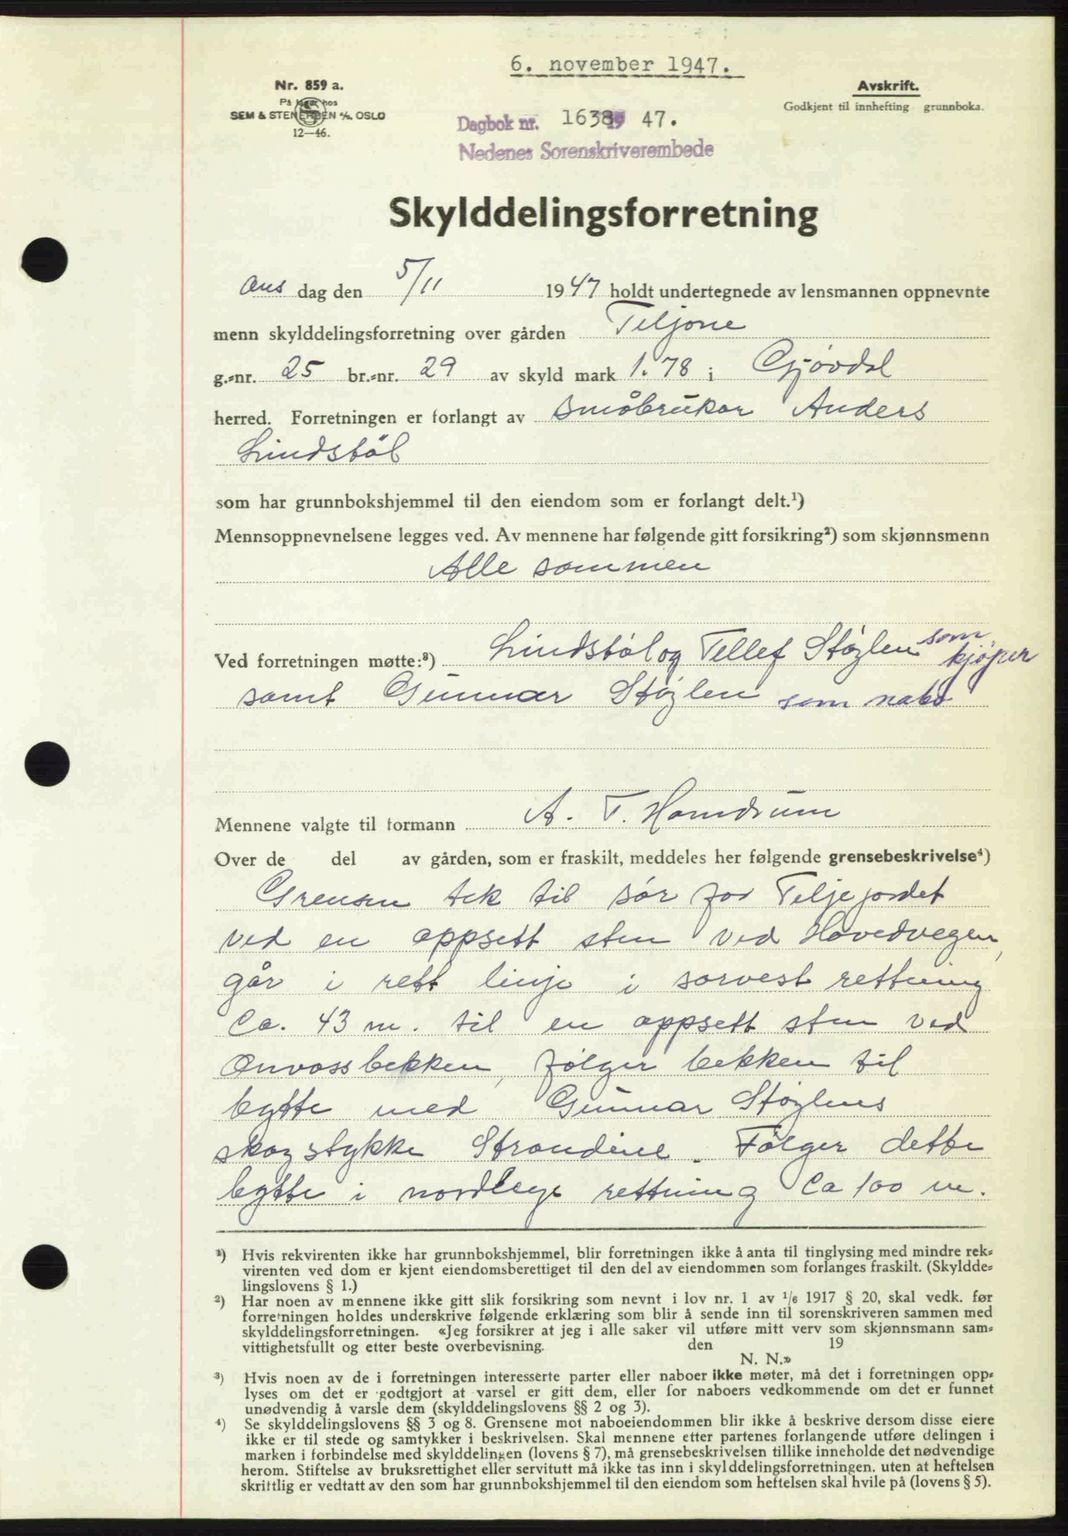 6. november 1947.
Nr. 859 a.
På lager hos
SEM & STENERSEN A/S, OSLO
12—46.
Avskrift.
Godkjent til innhefting grunnboka.
Dagbok nr. 1638 47.
Nedenes Sorenskriverembede
Skylddelingsforretning
Ons dag den 5/11 1947 holdt undertegnede av lensmannen oppnevnte
menn skylddelingsforretning over gården Teljone
g.-nr. 25 br.-nr. 29 av skyld mark 1.78 i Gjøvdal
herred. Forretningen er forlangt av småbruker Anders
Lindstøl
som har grunnbokshjemmel til den eiendom som er forlangt delt.¹)
Mennsoppnevnelsene legges ved. Av mennene har følgende gitt forsikring²) som skjønnsmenn
Alle sammen
Ved forretningen møtte:³) Lindstøl og Tellef Støylen som kjøper
samt Gunnar Støylen som nabo
Mennene valgte til formann A. T. Hamdrum
Over de del av gården, som er fraskilt, meddeles her følgende grensebeskrivelse⁴)
Grensen tek til sør for Teljejordet
ved en oppsett sten ved Hovedvegen,
går i rett linje i sørvest rettning
Ca. 43 m. til en oppsett sten ved
bekken, følger bekken til
bytte med Gunnar Støylens
skogstykke Strondene. Følger dette
bytte i nordlege rettning Ca 100 m.
¹) Hvis rekvirenten ikke har grunnbokshjemmel, blir forretningen ikke å anta til tinglysing med mindre rek-
virenten ved dom er kjent eiendomsberettiget til den del av eiendommen som forlanges fraskilt. (Skyldde-
lingslovens § 1.)
²) Har noen av mennene ikke gitt slik forsikring som nevnt i lov nr. 1 av ¹/₆ 1917 § 20, skal vedk. før
forretningen holdes underskrive følgende erklæring som blir å sende inn til sorenskriveren sammen med
skylddelingsforretningen. «Jeg forsikrer at jeg i alle saker vil utføre mitt verv som skjønnsmann sam-
vittighetsfullt og etter beste overbevisning. den 19
N. N.»
³) Hvis noen av de i forretningen interesserte parter eller naboer ikke møter, må det i forretningen opp-
lyses om det er godtgjort at varsel er gitt dem, eller for naboers vedkommende om det er funnet
unødvendig å varsle dem (skylddelingslovens §§ 2 og 3).
⁴) Se skylddelingslovens §§ 3 og 8. Grensene mot naboeiendommen blir ikke å beskrive dersom disse eiere
ikke er til stede og samtykker i beskrivelsen. Skal mennene etter partenes forlangende utføre delingen i
marken i forbindelse med skylddelingen (lovens § 7), må grensebeskrivelsen tillike inneholde det nødvendige
herom. Stiftelse av bruksrettighet eller servitutt må ikke tas inn i skylddelingsforretningen, uten at heftelsen
skriftlig er vedtatt av den som har grunnbokshjemmel til den eiendom som heftelsen skal hvile på (lovens § 5).